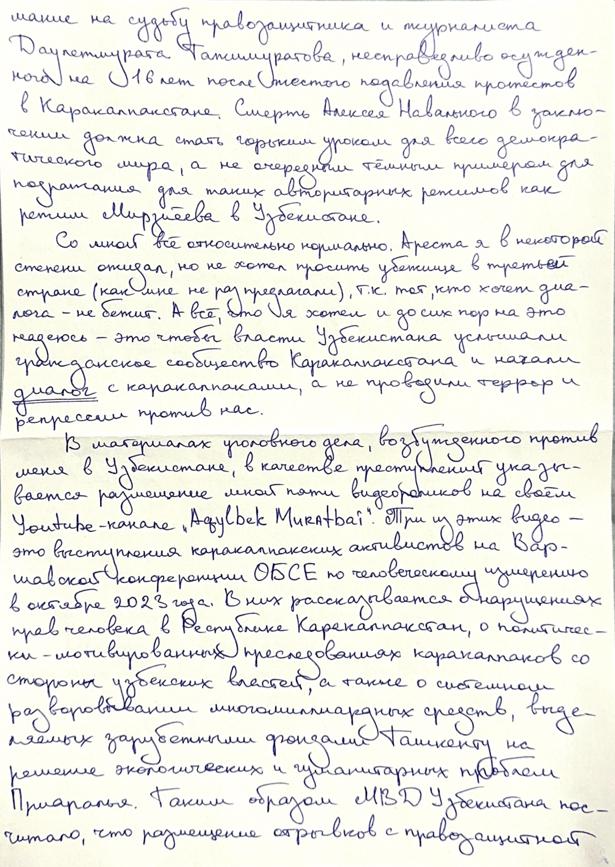 мание на судьбу правозащитника и журналиста
Даулетмурата Тажимуратова, несправедливо осужден-
ного на 16 лет после жестого подавления протестов
в Каракалпакстане. Смерть Алексея Навального в заклю-
чении должна стать горьким уроком для всего демокра-
тического мира, а не очередным тёмным примером для
подражания для таких авторитарных режимов как
режим Мирзиёева в Узбекистане.
Со мной всё относительно нормально. Ареста я в некоторой
степени ожидал, но не хотел просить убежище в третьей
стране (как мне не раз предлагали), т.к. тот, кто хочет диа-
лога - не бежит. А всё, что я хотел и до сих пор на это
надеюсь - это чтобы власти Узбекистана услышали
гражданское сообщество Каракалпакстана и начали
диалог с каракалпаками, а не проводили террор и
репрессии против нас.
В материалах уголовного дела, возбужденного против
меня в Узбекистане, в качестве преступлений указы-
вается размещение мной пяти видеороликов на своём
Youtube-канале „Aqylbek Muratbai". Три из этих видео -
это выступления каракалпакских активистов на Вар-
шавской конференции ОБСЕ по человеческому измерению
в октябре 2023 года. В них рассказывается о нарушениях
прав человека в Республике Каракалпакстан, о политичес-
ки-мотивированных преследованиях каракалпаков со
стороны узбекских властей, а также о системном
разворовывании многомиллиардных средств, выде-
ляемых зарубежными фондами Ташкенту на
решение экологических и гуманитарных проблем
Приаралья. Таким образом МВД Узбекистана пос-
читало, что размещение отрывков с правозащитной